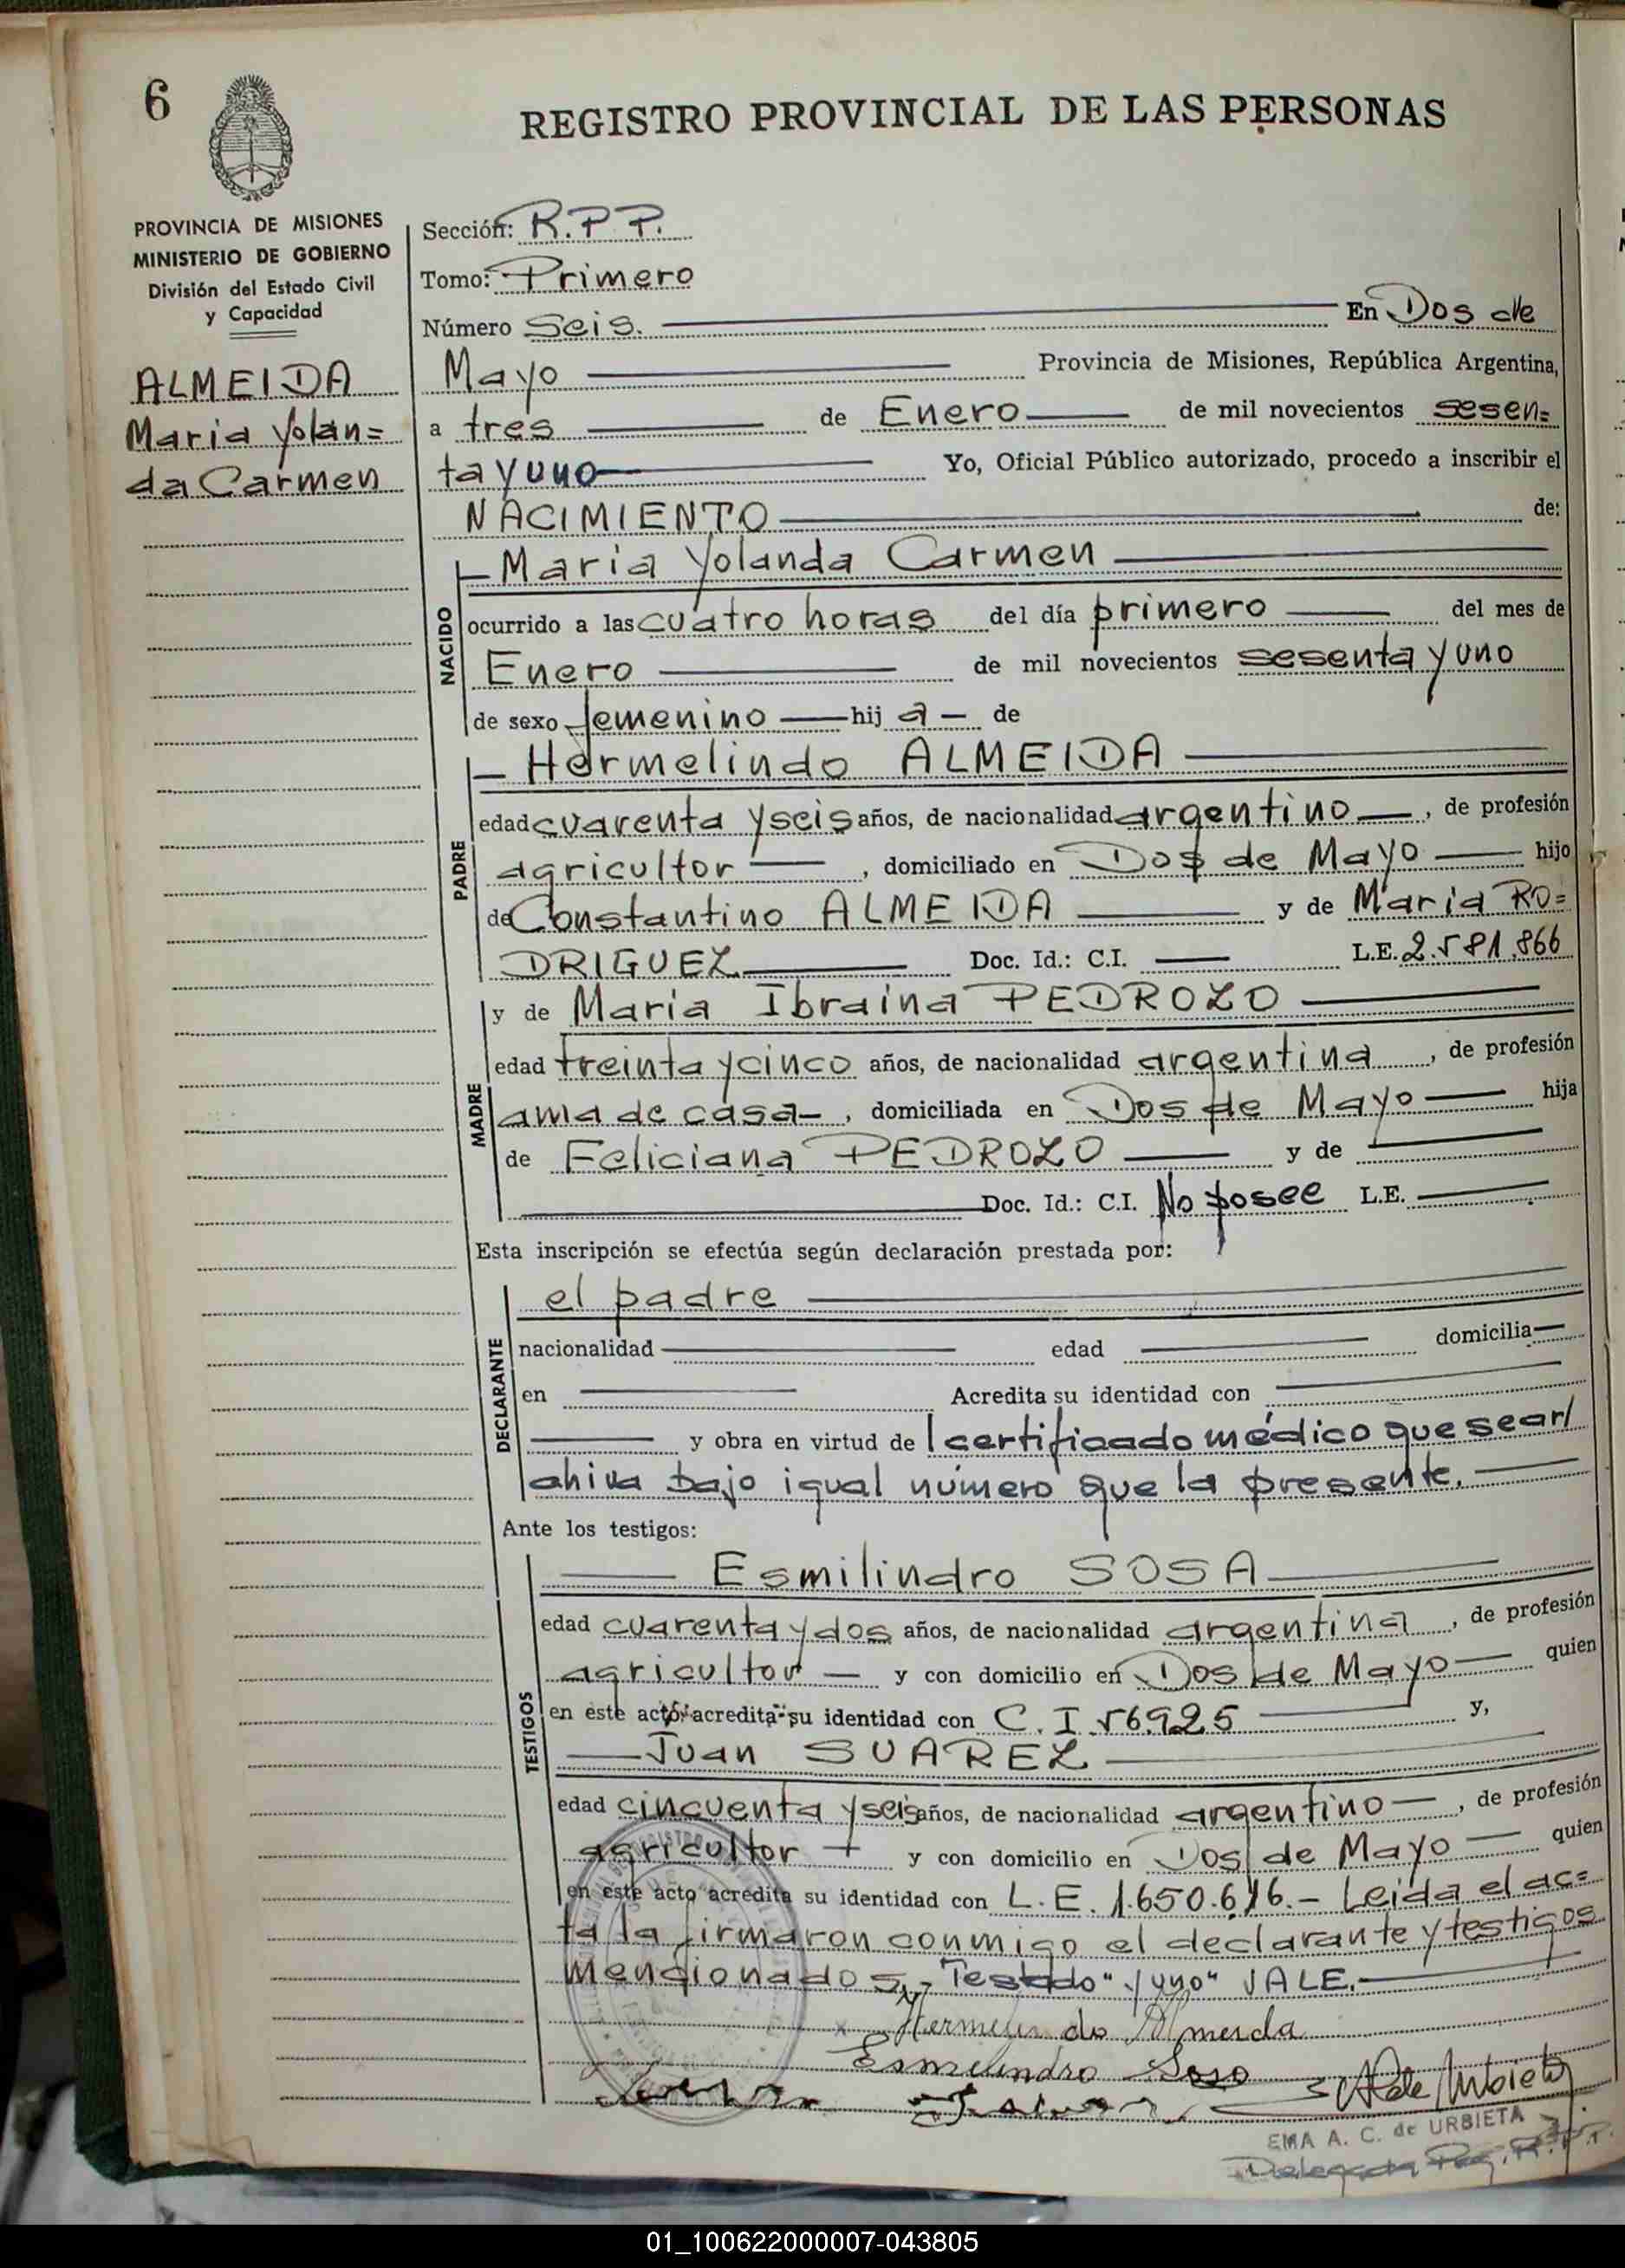 6
REGISTRO PROVINCIAL DE LAS PERSONAS
PROVINCIA DE MISIONES
MINISTERIO DE GOBIERNO
División del Estado Civil
y Capacidad
ALMEIDA
Maria Yolan=
da Carmen
Sección: R.P.P.
Tomo: Primero
Número Seis. En Dos de
Mayo Provincia de Misiones, República Argentina,
a tres de Enero de mil novecientos sesen=
ta y uno Yo, Oficial Público autorizado, procedo a inscribir el
NACIMIENTO de:
NACIDO
Maria Yolanda Carmen
ocurrido a las cuatro horas del día primero del mes de
Enero de mil novecientos sesenta y uno
de sexo femenino hij a de
PADRE
Hermelindo ALMEIDA
edad cuarenta y seis años, de nacionalidad argentino, de profesión
agricultor, domiciliado en Dos de Mayo hijo
de Constantino ALMEIDA y de Maria RO=
DRIGUEZ Doc. Id.: C.I. L.E. 2.581.866
MADRE
y de Maria Ibraina PEDROZO
edad treinta y cinco años, de nacionalidad argentina, de profesión
ama de casa, domiciliada en Dos de Mayo hija
de Feliciana PEDROZO y de
Doc. Id.: C.I. No posee L.E.
Esta inscripción se efectúa según declaración prestada por:
DECLARANTE
el padre
nacionalidad edad domicilia
en Acredita su identidad con
y obra en virtud de l certificado médico que se ar/
chiva bajo igual número que la presente.
Ante los testigos:
TESTIGOS
Esmilindro SOSA
edad cuarenta y dos años, de nacionalidad argentina, de profesión
agricultor y con domicilio en Dos de Mayo quien
en este acto acredita su identidad con C.I. 56.925 y,
Juan SUAREZ
edad cincuenta y seis años, de nacionalidad argentino, de profesión
agricultor y con domicilio en Dos de Mayo quien
en este acto acredita su identidad con L.E. 1.650.616.- Leida el ac=
ta la firmaron conmigo el declarante y testigos
mencionados.- Testado "y uno" VALE.
Hermelindo Almeida
Esmilindro Soso
EMA A. C. de URBIETA
Delegada Reg. R.P.P.
01_100622000007-043805